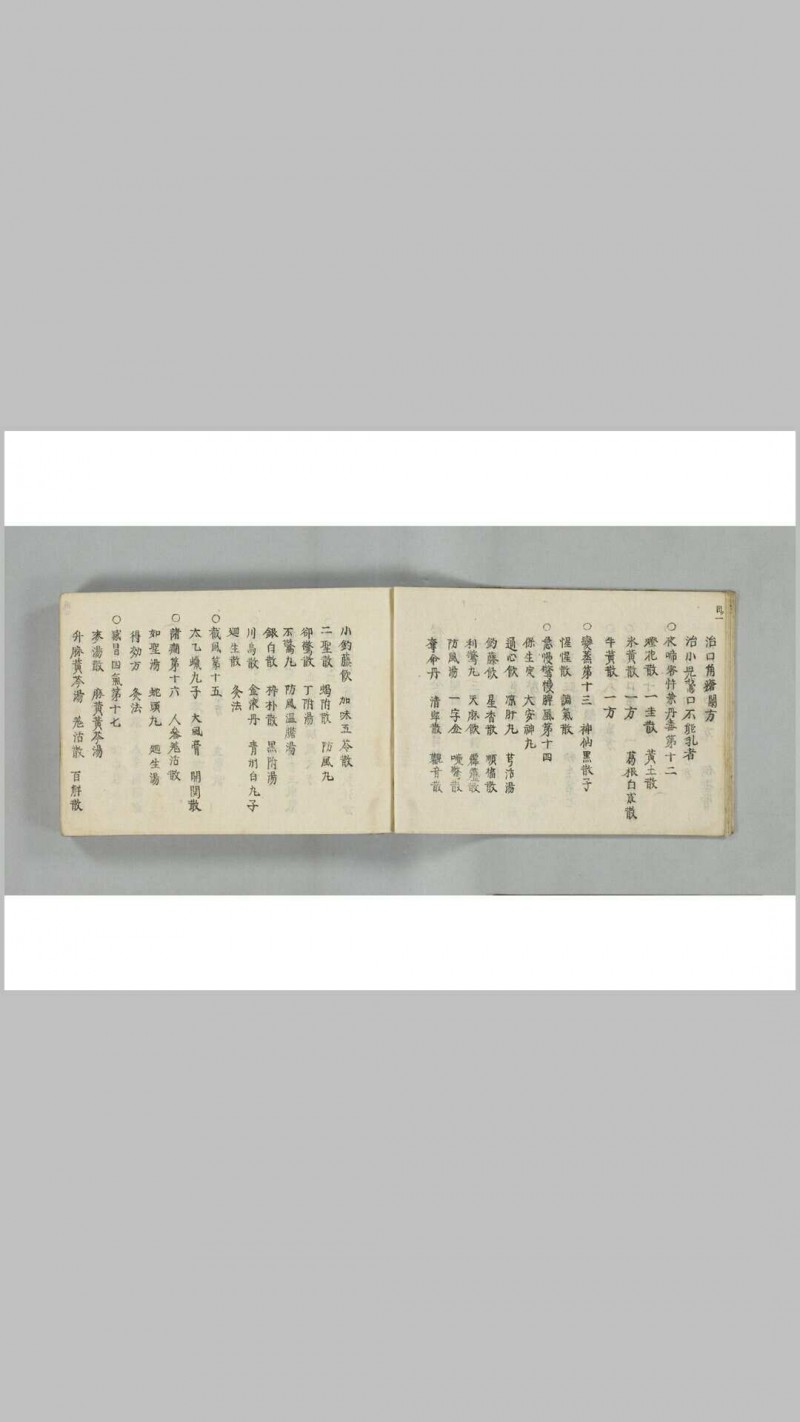 治口角瘡開方
治小児驚口不能乳者
○夜啼客忤兼丹毒第十二
燈花散 一圭散 黄土散
氷黄散 一方 葛根白朮散
牛黄散 一方
○變蒸第十三 神仙黒散子
惺惺散 調氣散
○急慢驚慢脾風第十四
保生 大安神丸
通心飲 瀉肝丸 芎活湯
釣藤飲 星香散
利驚丸 天麻飲 霹靂散
防風湯 一字金 嚏驚散
奪命丹 清 散 觀音散
小釣藤飲 加味五苓散
二聖散 蝎附散 防風丸
卻驚散 丁附湯
不驚丸 防風温膽湯
銀白散 醉朴散 黒附湯
川烏散 金液丹 青州白丸子
廻生散 灸法
○截風第十五
太乙蠟丸子 大風膏 開関散
○諸癇第十六 人參羌活散
如聖湯 蛇頭丸 廻生湯
得効方 灸法
○感冒四氣第十七
麥湯散 麻黄黄芩湯
升麻黄芩湯 羌活散 百解散